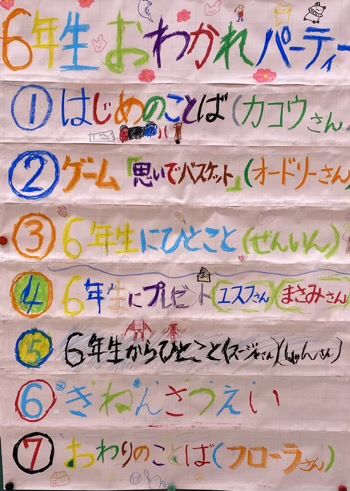 6年生おわかれパーティー
① はじめのことば(カコウさん
② ゲーム『思いでバスケット』(オードリーさん
③ 6年生にひとこと(ぜんいん)
④ 6年生にプレゼント(ユスフさん)(まさみさん)
⑤ 6年生からひとこと(スージさん)(しゅんさん)
⑥ きねんさつえい
⑦ おわりのことば(フローラさん)